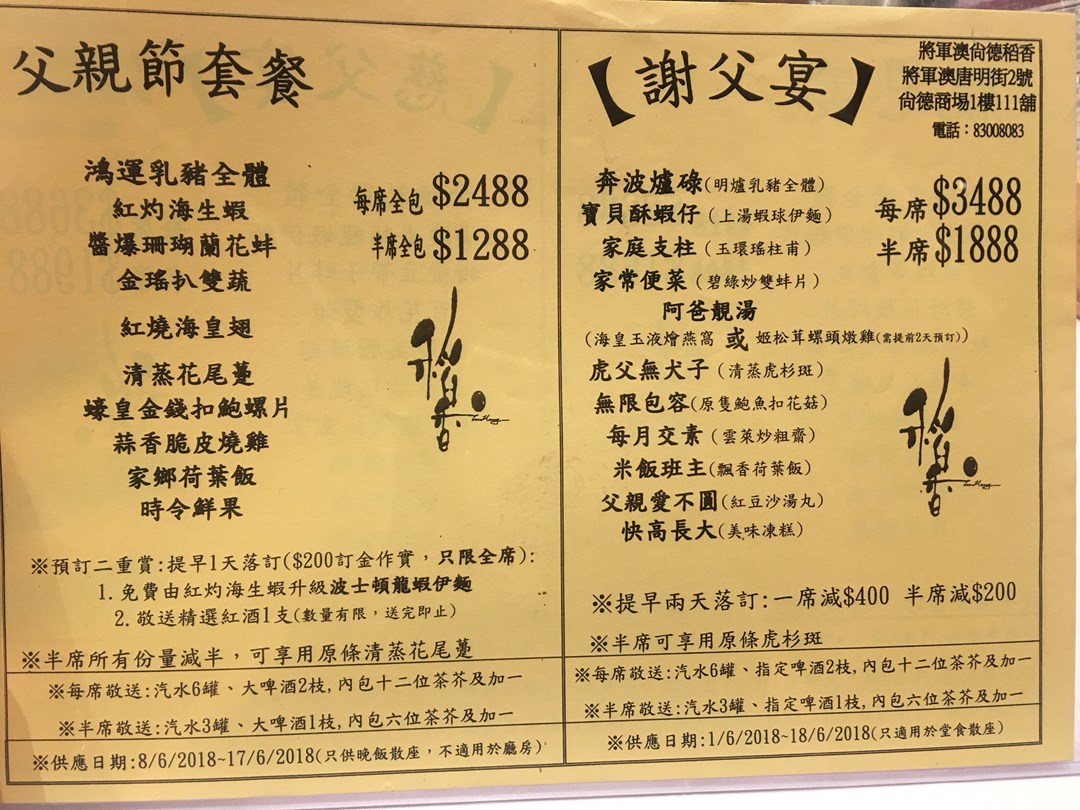 父親節套餐
鴻運乳豬全體
紅灼海生蝦
醬爆珊瑚蘭花蚌
金瑤扒雙蔬
紅燒海皇翅
清蒸花尾躉
蠔皇金錢扣鮑螺片
蒜香脆皮燒雞
家鄉荷葉飯
時令鮮果
每席全包 $2488
半席全包 $1288
稻香
※預訂二重賞:提早1天落訂($200訂金作實，只限全席):
1. 免費由紅灼海生蝦升級波士頓龍蝦伊麵
2. 敬送精選紅酒1支(數量有限，送完即止)
※半席所有份量減半，可享用原條清蒸花尾躉
※每席敬送:汽水6罐、大啤酒2枝,內包十二位茶芥及加一
※半席敬送:汽水3罐、大啤酒1枝,內包六位茶芥及加一
※供應日期:8/6/2018~17/6/2018(只供晚飯散座，不適用於廳房)
【謝父宴】
將軍澳尙德稻香
將軍澳唐明街2號
尙德商場1樓111舖
電話：83008083
奔波爐碌(明爐乳豬全體)
寶貝酥蝦仔(上湯蝦球伊麵)
家庭支柱(玉環瑤柱甫)
家常便菜(碧綠炒雙蚌片)
阿爸靚湯
(海皇玉液燴燕窩 或 姬松茸螺頭燉雞(需提前2天預訂))
虎父無犬子(清蒸虎杉斑)
無限包容(原隻鮑魚扣花菇)
每月交素(雲萊炒粗齋)
米飯班主(飄香荷葉飯)
父親愛不圓(紅豆沙湯丸)
快高長大(美味凍糕)
每席 $3488
半席 $1888
稻香
※提早兩天落訂:一席減$400 半席減$200
※半席可享用原條虎杉斑
※每席敬送:汽水6罐、指定啤酒2枝,內包十二位茶芥及加一
※半席敬送:汽水3罐、指定啤酒1枝,內包六位茶芥及加一
※供應日期:1/6/2018~18/6/2018(只適用於堂食散座)